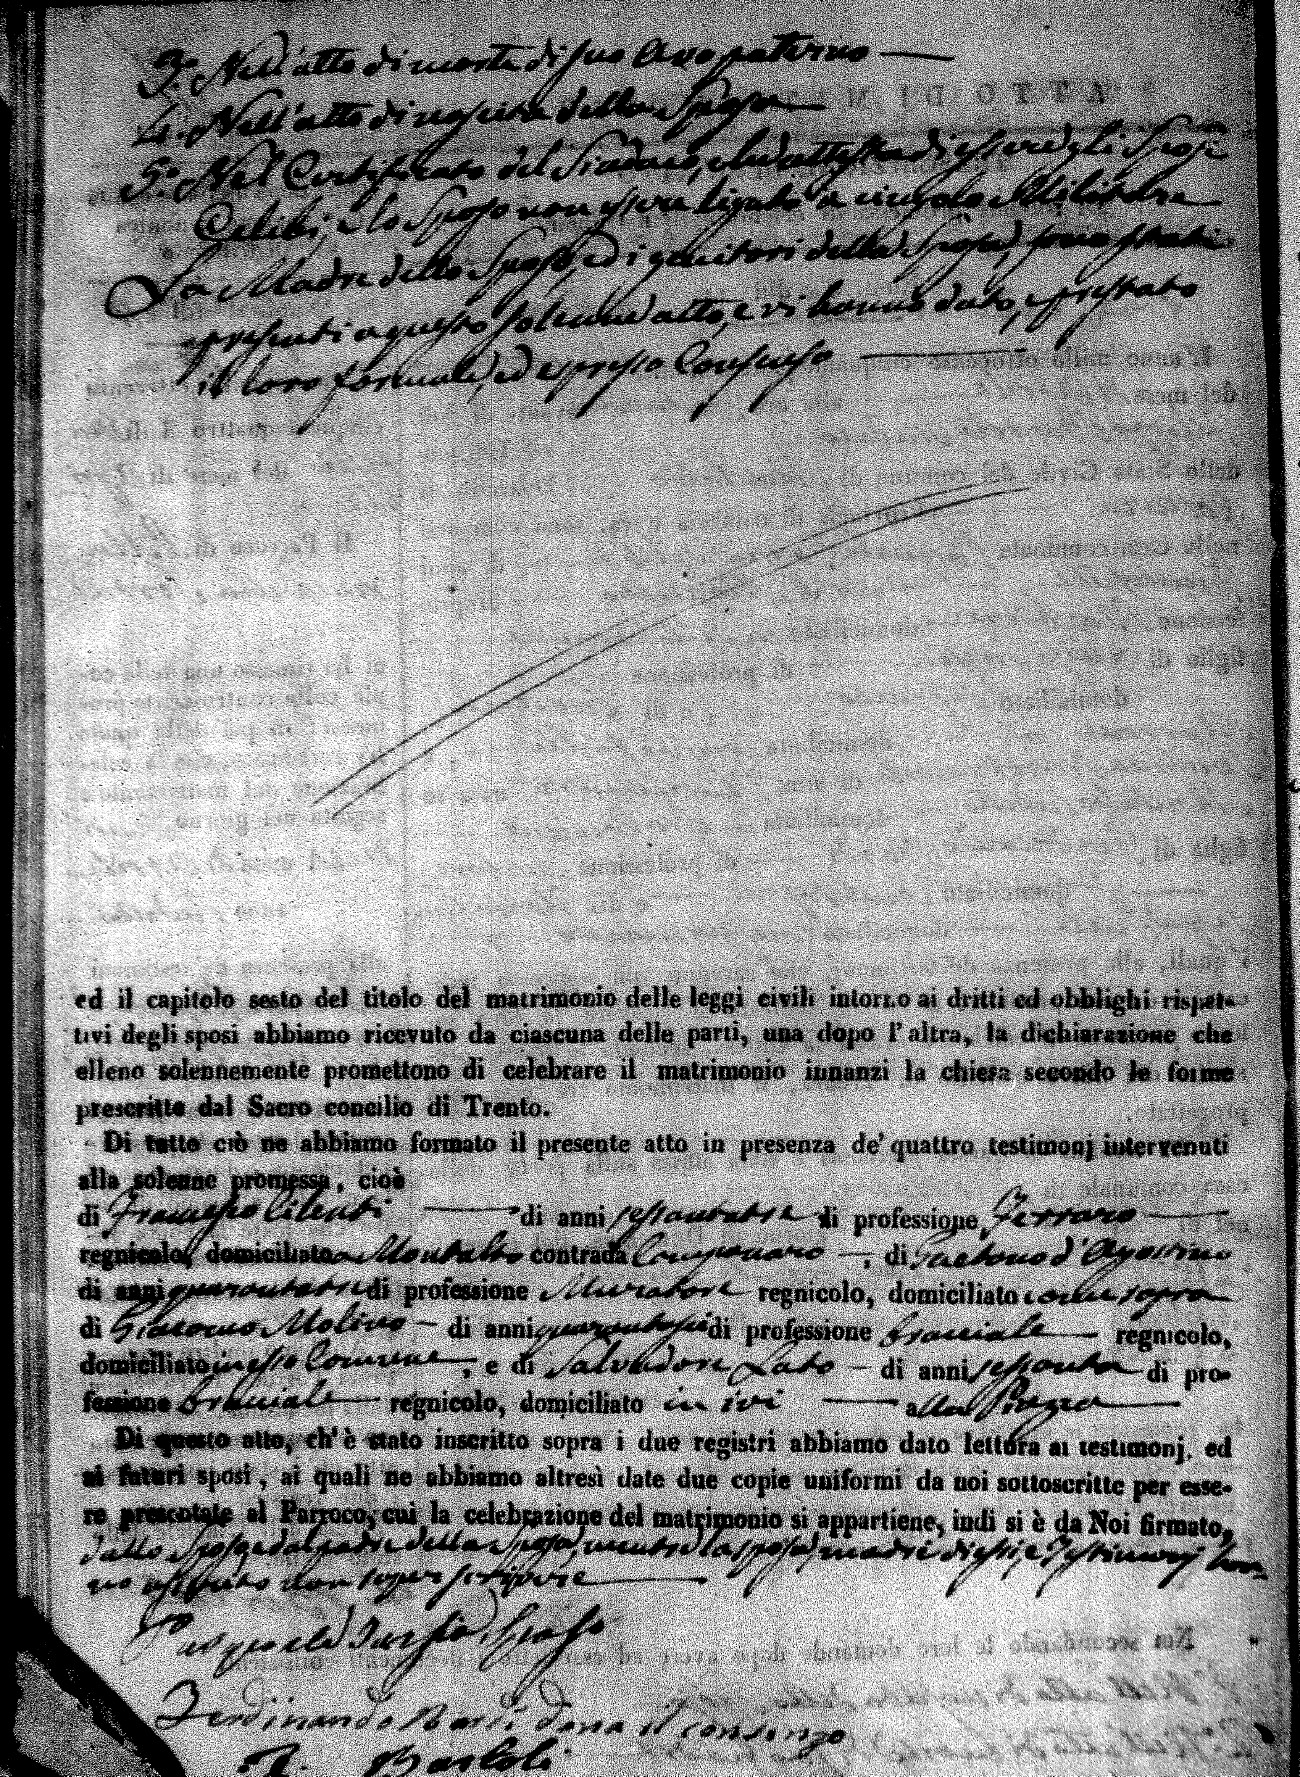 3.° Nell'atto di morte di suo Avo paterno
4.° Nell'atto di nascita della Sposa
5.° Nel Certificato del Sindaco, che attesta di essere gli Sposi
Celibi, e lo Sposo non essere ligato a cingolo Militare
La Madre dello Sposo, ed i genitori della Sposa, sono stati
presenti a questo solenne atto, e vi hanno dato, e prestato
il loro formale, ed espresso Consenso
ed il capitolo sesto del titolo del matrimonio delle leggi civili intorno ai dritti ed obblighi rispet-
tivi degli sposi abbiamo ricevuto da ciascuna delle parti, una dopo l'altra, la dichiarazione che
elleno solennemente promettono di celebrare il matrimonio innanzi la chiesa secondo le forme
prescritte dal Sacro concilio di Trento.
Di tutto ciò ne abbiamo formato il presente atto in presenza de' quattro testimonj intervenuti
alla solenne promessa, cioè
di Francesco Cilenti di anni sessantatre di professione Ferraro
regnicolo, domiciliato a Montalto contrada, di Gaetano d'Agostino
di anni quarantatre di professione Muratore regnicolo, domiciliato come sopra
di Giacomo Molino di anni di professione bracciale regnicolo,
domiciliato in esso Comune, e di Salvadore Lato di anni sessanta di pro-
fessione bracciale regnicolo, domiciliato in ivi alla Piazza
Di questo atto, ch'è stato inscritto sopra i due registri abbiamo dato lettura ai testimonj, ed
ai futuri sposi, ai quali ne abbiamo altresì date due copie uniformi da noi sottoscritte per esse-
re presentate al Parroco, cui la celebrazione del matrimonio si appartiene, indi si è da Noi firmato,
dallo Sposo, e dal padre della Sposa, mentre la sposa, madri di essi, e Testimonj han-
no asserito non saper scrivere
Pasquale sposo
Ferdinando Nardi dona il consenzo
Bartoli